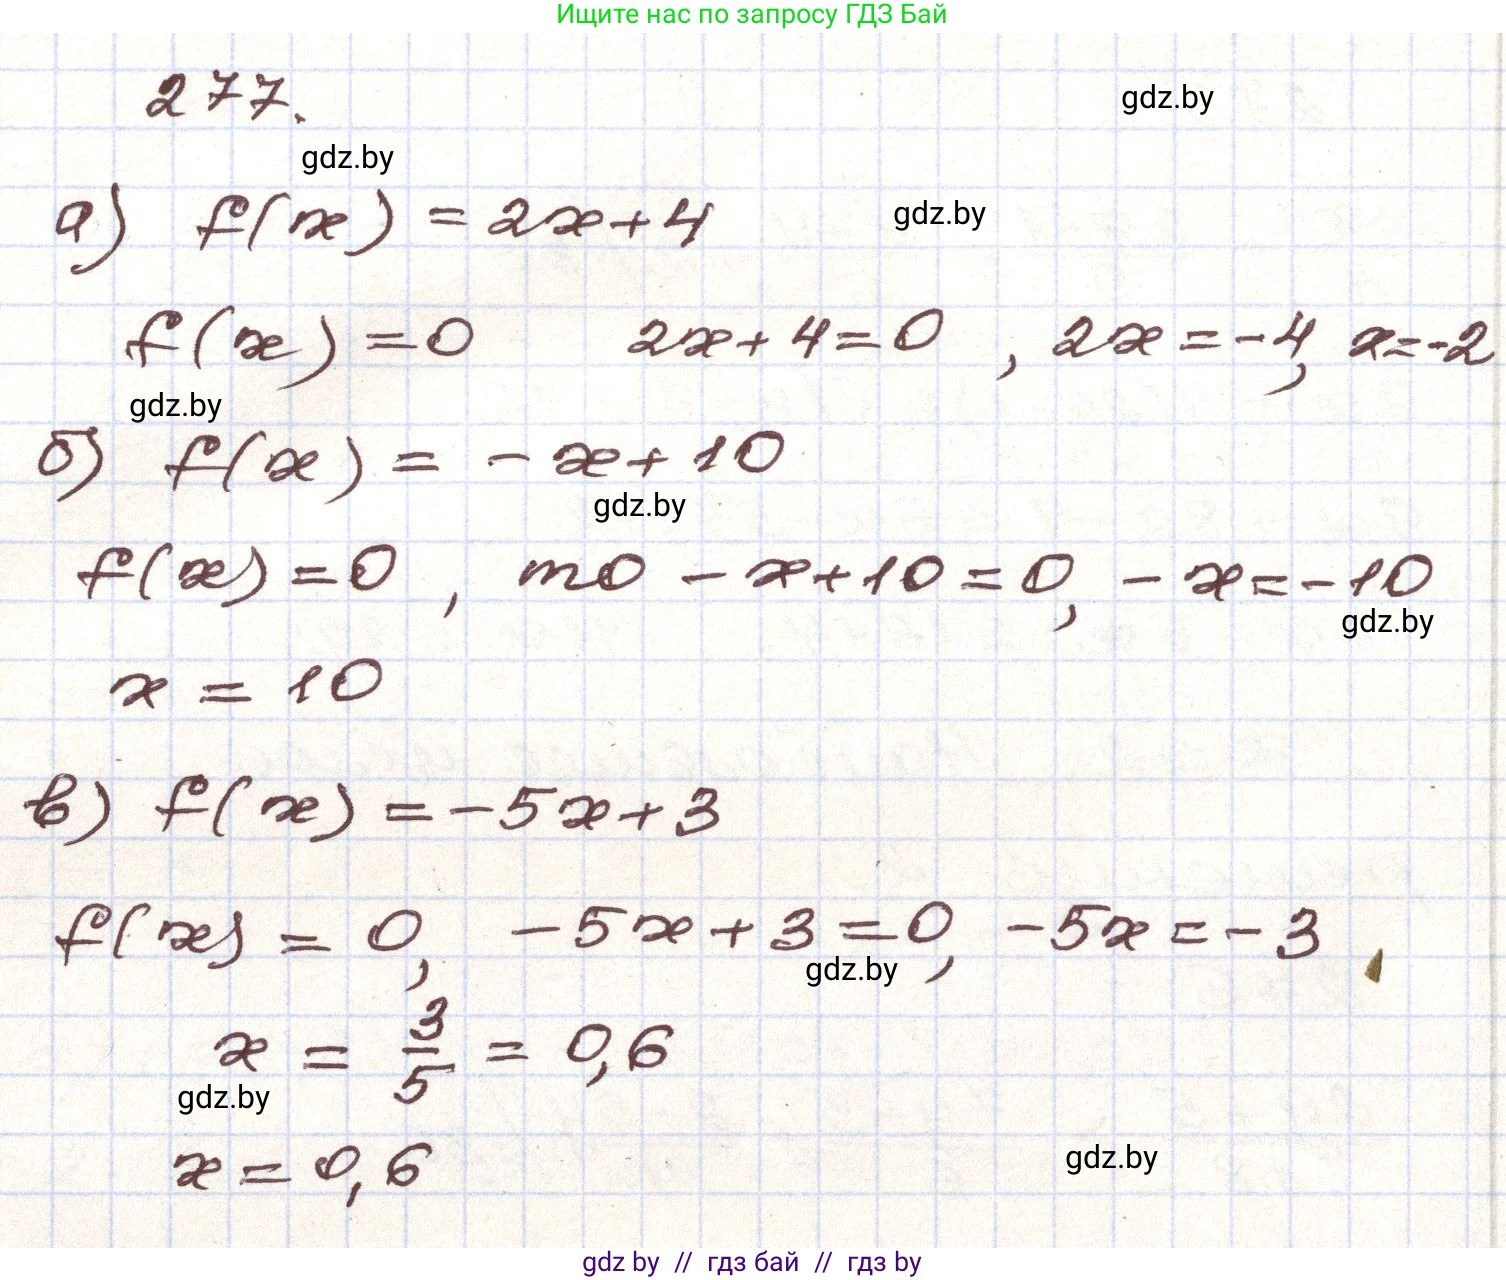 Ищите нас по запросу ГДЗ Бай
277.
gdz.by
gdz.by
а) f(x) = 2x+4
gdz.by
f(x)=0 2x+4=0 , 2x=-4, x=-2
gdz.by
б) f(x) = -x+10
gdz.by
f(x)=0 , то -x+10=0, -x=-10
gdz.by
x = 10
в) f(x) = -5x+3
f(x) = 0, -5x+3=0, -5x=-3,
gdz.by
x = 3/5 = 0,6
gdz.by
x = 0,6
gdz.by
gdz by // гдз бай // гдз by